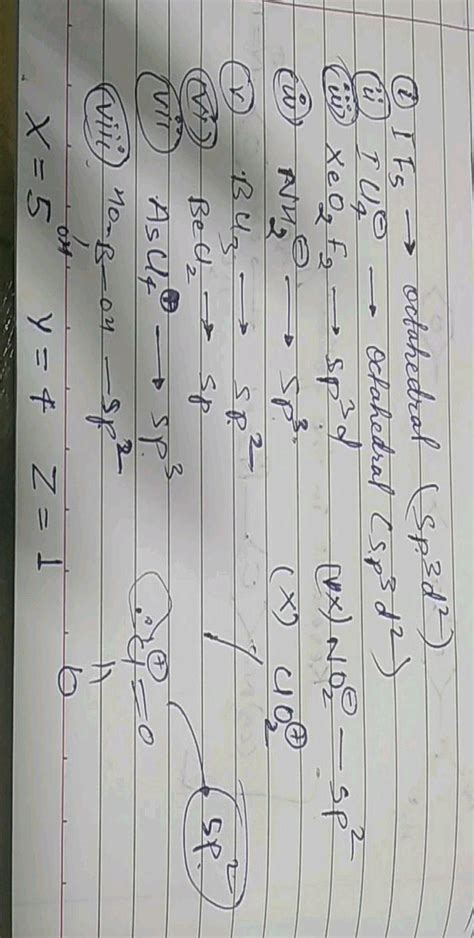 (i) IF5 → octahedral (sp3d2)
(ii) ICl4⊖ → octahedral (sp3d2)
(iii) XeO2F2 → sp3d
(iv) NH2⊖ → sp3
(v) BCl3 → sp2
(vi) BeCl2 → sp
(vii) AsCl4⊕ → sp3
(viii) HO-B-OH — sp2
OH
(ix) NO2⊖ — sp2
(x) ClO2⊕
Cl⊕=O
O
sp2
X=5 Y=4 Z=1